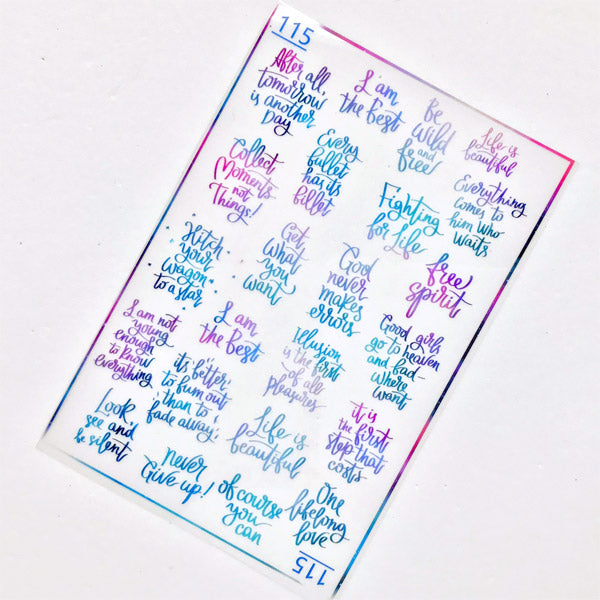 115
After all,
tomorrow
is another
Day
I am
the Best
Be
Wild
and
free
Life is
beautiful
Collect
Moments
not
Things!
Every
bullet
has its
billet
Fighting
for Life
Everything
comes to
him who
waits
Hitch
your
wagon
to a star
Get
What
you
want
God
never
makes
errors
free
spirit
I am not
young
enough
to know
everything
I am
the best
Illusion
is the first
of all
Pleasures
Good girls
go to heaven
and bad—
where
want
it's better
to burn out
than to
fade away!
Look
see and
be silent
Life is
beautiful
it is
the first
step that
costs
never
Give up!
of course
you
can
One
lifelong
love
115